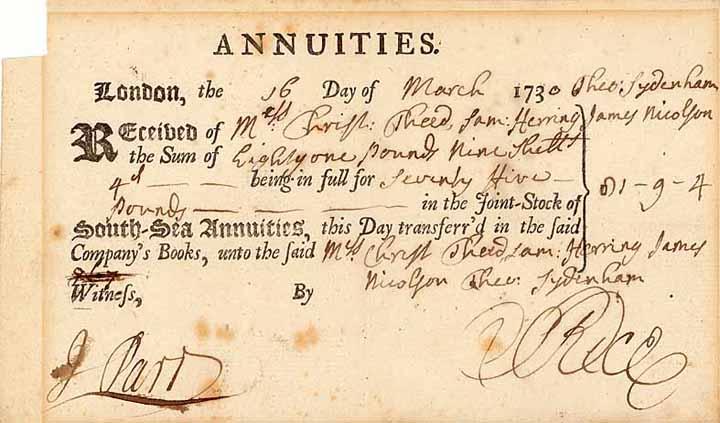 ANNUITIES.
London, the 16 Day of March 1730 Theo: Sydenham
REceived of Mess Christ: Theed, Sam: Herring James Nicolson
the Sum of Eighty one Pounds Nine Shills
4d — — being in full for Seventy Five —
Pounds — — — in the Joint-Stock of 81-9-4
South-Sea Annuities, this Day transferr'd in the said
Company's Books, unto the said Mrs Christ Theed, Sam: Herring James
Nicolson Theo: Sydenham
Witness, By
J Parr
Rice